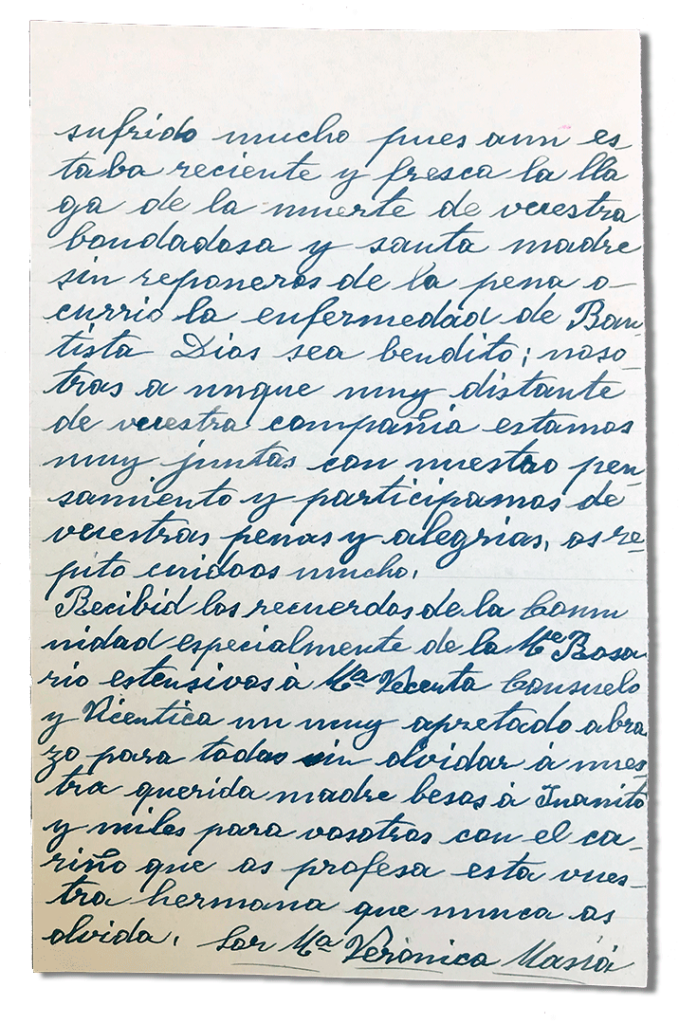 sufrido mucho pues aun es-
taba reciente y fresca la lla
ga de la muerte de vuestra
bondadosa y santa madre
sin reponeros de la pena o-
currio la enfermedad de Bau-
tista Dios sea bendito; noso-
tras a unque muy distante
de vuestra compañia estamos
muy juntas con nuestro pen-
samiento y participamos de
vuestras penas y alegrias, os re-
pito cuidaos mucho.
Recibid los recuerdos de la Comu
nidad especialmente de la Me Rosa
rio estensivos à Mª Vecenta Consuelo
y Vicentica un muy apretado abra
zo para todas sin olvidar à nues-
tra querida madre besos à Juanito
y miles para vosotros con el ca-
riño que os profesa esta vues-
tra hermana que nunca os
olvida. Sor Mª Verónica Masiá